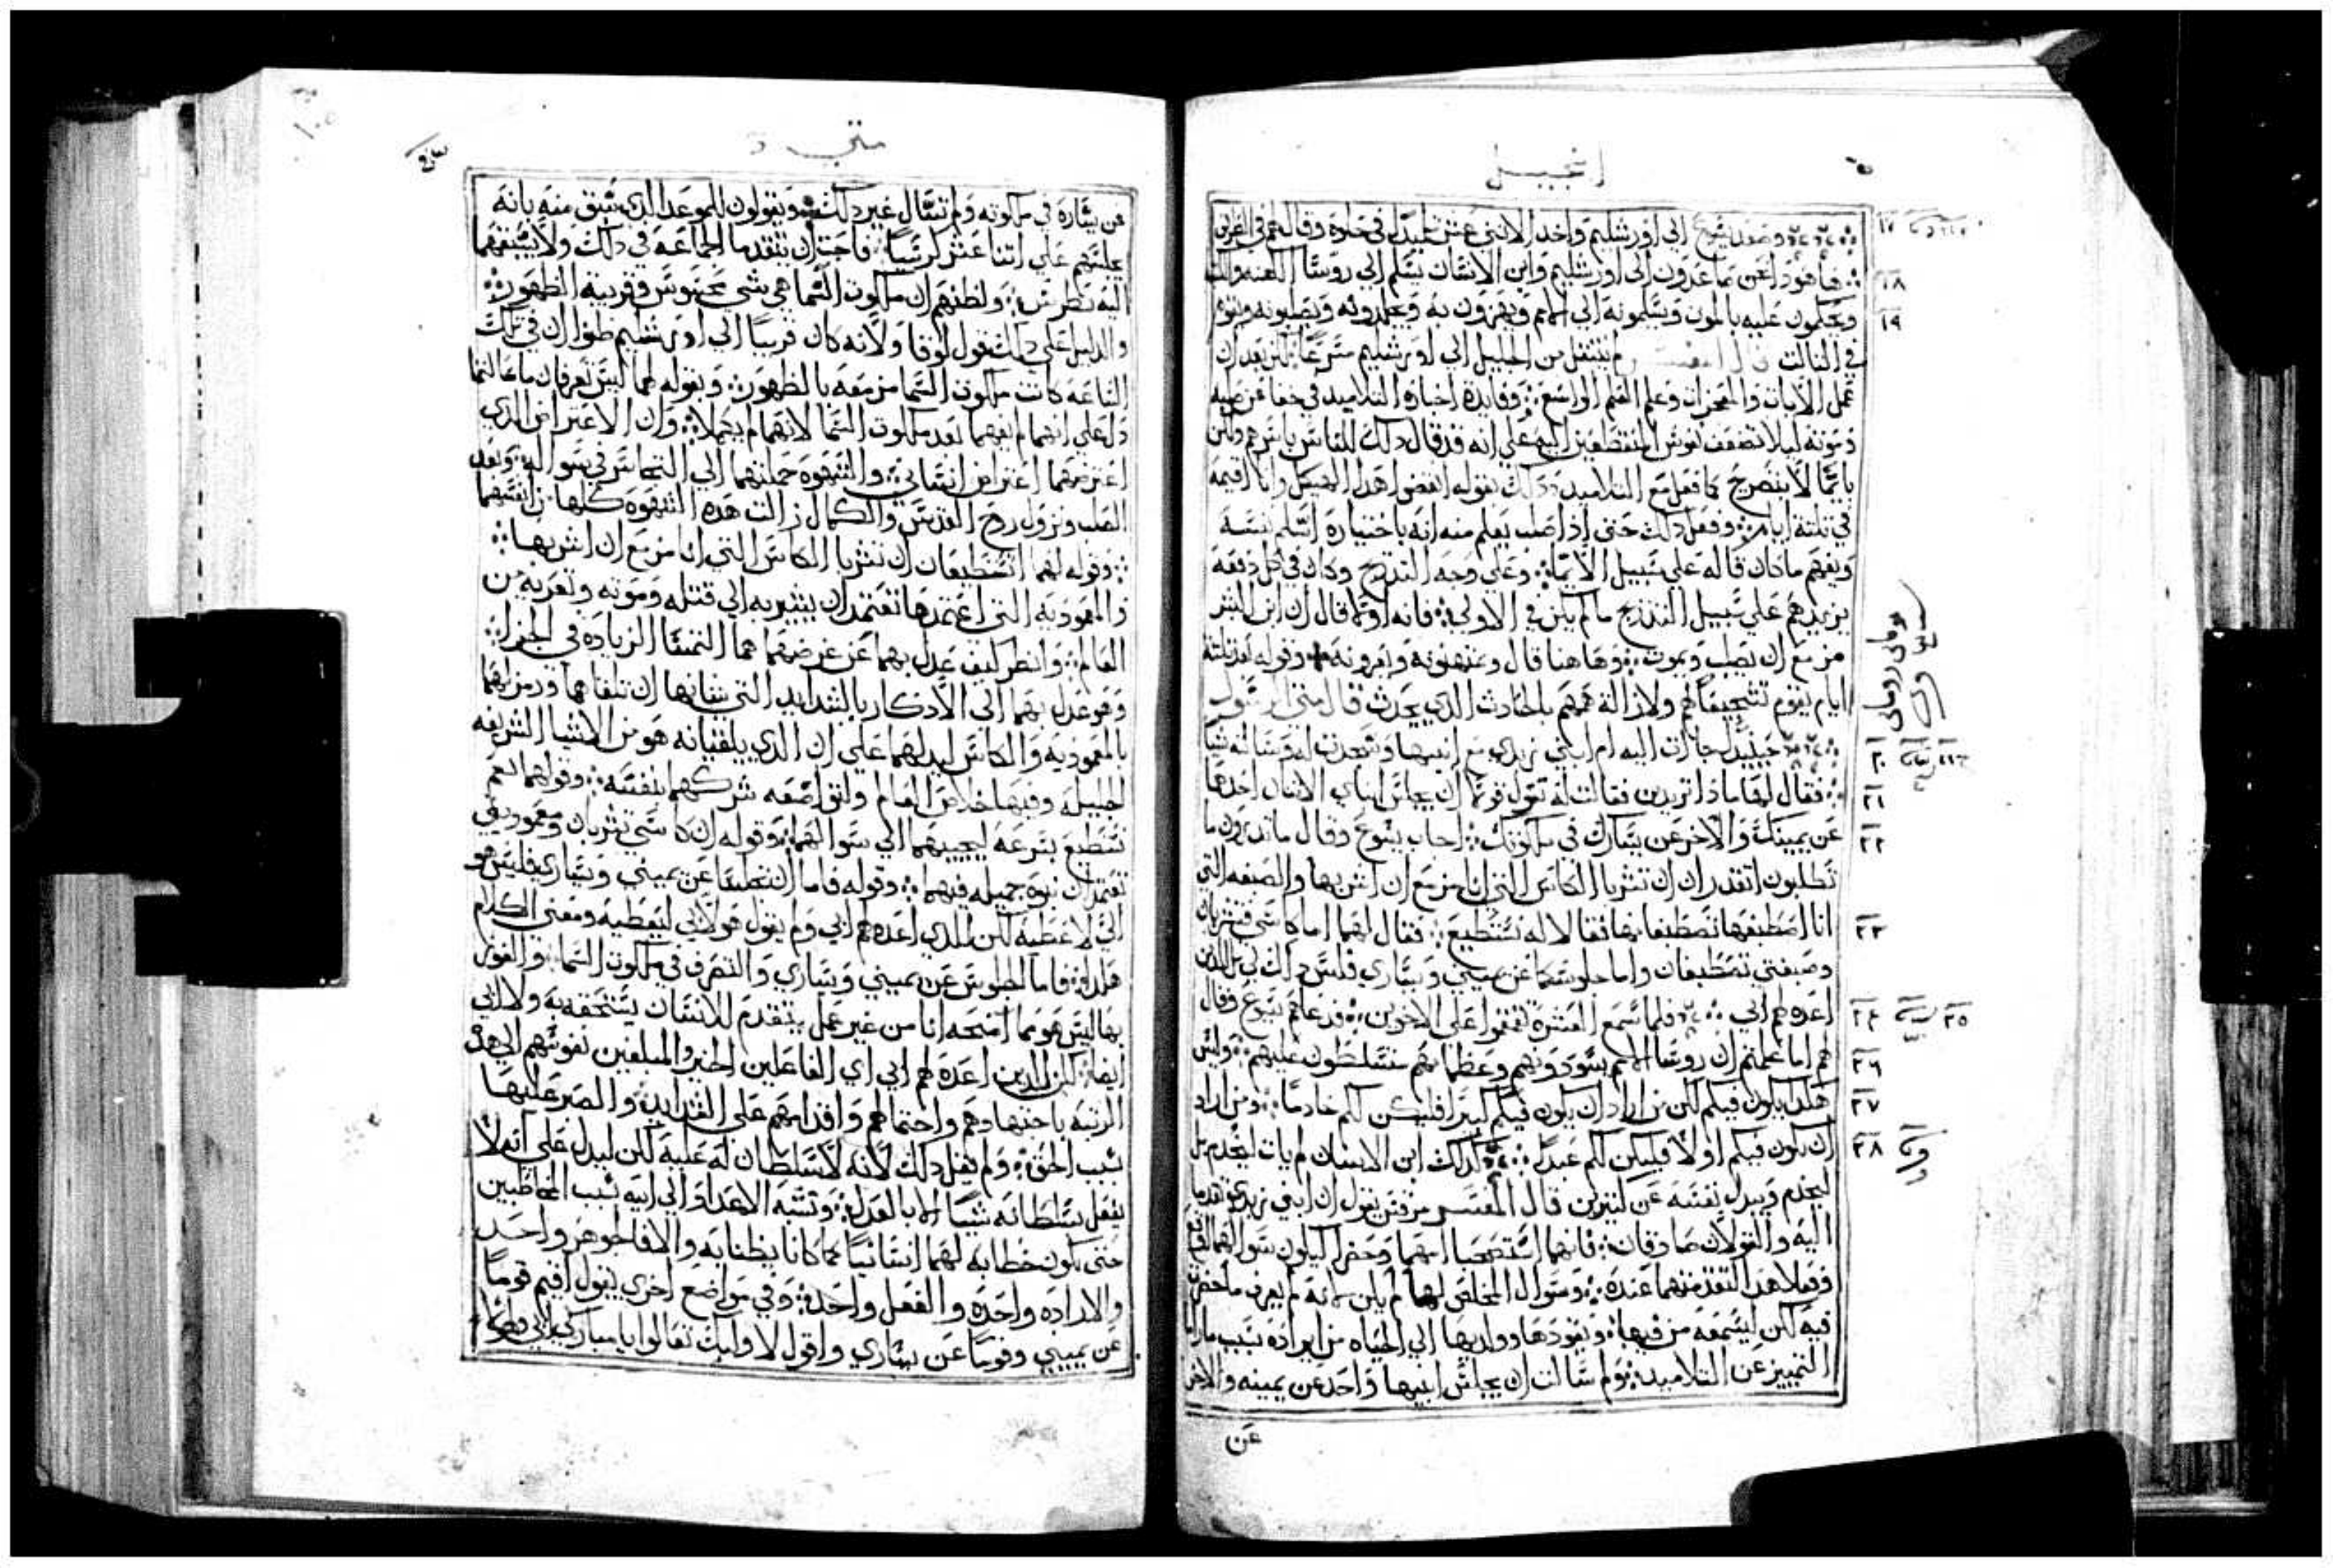 انجيل
وصعد يسوع الي اورشليم واخد الاثني عشر تلميدا في خلوة وقال لهم في الطريق
فها هودا نحن صاعدون الي اورشليم وابن الانسان يسلم الي روسا الكهنه والكتبه
ويحكمون عليه بالموت ويسلمونه الي الامم ويهزون به ويجلدونه ويصلبونه ويقوم
في التالت قال المفسر لم ينتقل من الجليل الي اورشليم مسرعا لكن بعد ان
عمل الايات والمعجزات وعلم التعليم الواسع وفايدة اخباره التلاميد في خفا عن صلبه
وموته ليلا تضعف نفوس المنقطعين اليه علي انه قد قال دلك للناس باسرهم ولكن
بايما لا بتصريح كما فعل مع التلاميد ودلك بقوله انقضوا هدا الهيكل وانا اقيمه
في تلتة ايام وفعل دلك حتي ادا صلب يعلم منه انه باختياره اسلم نفسه
ويفهم ما كان قاله علي سبيل الايما وعلي وجه التدريج وكان في كل دفعه
يزيدهم علي سبيل التدريج ما لم يكن في الاولي فانه اولا قال ان ابن البشر
مزمع ان يصلب ويموت وهاهنا قال ويمتهنونه ويهزونه وقوله بعد تلتة
ايام يقوم تشجيعا لهم ولازالة همهم بالحادث الدي يحدث قال متي الرسول
حينيد جات اليه ام ابني زبدي مع ابنيها وسجدت له وسالته شيا
فقال لها مادا تريدين فقالت له تقول قولا ان يجلس ابناي الاتنان احدهما
عن يمينك والاخر عن يسارك في ملكوتك اجاب يسوع وقال ما تدرون ما
تطلبون اتقدران ان تشربا الكاس التي انا مزمع ان اشربها والصبغه التي
انا اصطبغها تصطبغانها فقالا له نستطيع فقال لهما اما كاسي فتشربان
وصبغتي تصطبغان واما جلوسكما عن يميني ويساري فليس داك لي بل للدين
اعده لهم ابي فلما سمع العشرة تقمقموا علي الاخوين فدعاهم يسوع وقال
لهم اما علمتم ان روسا الامم يسودونهم وعظماهم متسلطون عليهم وليس
هكدا يكون فيكم لكن من اراد ان يكون فيكم كبيرا فليكن لكم خادما ومن اراد
ان يكون فيكم اولا فليكن لكم عبدا كدلك ابن الانسان لم يات ليخدم بل
ليخدم ويبدل نفسه عن كتيرين قال المفسر مرقس يقول ان ابني زبدي تقدما
اليه والقولان صادقان فانهما استصحبا امهما وحضرا ليكون سوالهما
وفعلا هدا لتقدمتهما عنده وسوال المخلص لها لم يكن لانه لم يعرف ما حضرت
فيه لكن ليسمعه من فيها ويقودها وولديها الي الحياه من ايراده بسبب ما راما
التمييز عن التلاميد ولم سالت ان يجلس ابنيها واحد عن يمينه والاخر
عن
١٧
١٨
١٩
٢٠
٢١
٢٢
٢٣
٢٤ ٢٥
٢٦
٢٧
٢٨
متي
عن يساره في ملكوته ولم تسال غير دلك ويقولون للموعد الدي سبق منه بانه
يجلسهم علي اتنا عشر كرسيا فاحبت ان تتقدما الجماعه في دلك ولا يسبقهما
اليه بطرس ولظنهم ان ملكوت السما هي شي محسوس وقريبة الظهور
والدليل علي دلك قول لوقا ولانه كان قريبا الي اورشليم ظنوا ان في تلك
الساعه كانت ملكوت السما مزمعه بالظهور وبقوله لهما ليس تعرفان ما سالتما
دل علي انهما لم يفهما بعد ملكوت السما لانهما لم يكملا وان الاعتراض الدي
اعترضهما اعتراض انساني والشهوه حملتهما الي التجاسر في سواله وبعد
الصلب ونزول روح القدس والكمال زالت هده الشهوه كلها من انفسهما
وقوله لهما اتستطيعان ان تشربا الكاس التي انا مزمع ان اشربها
والمعموديه التي اعتمدها تعتمدان يشير به الي قتله وموته وتعريه من
العالم وانظر كيف عدل بهما عن غرضهما هما التمسا الزياده في الجزا
وهو عدل بهما الي الادكار بالشدايد التي ينبغي لهما ان تلقاهما ورمز لهما
بالمعموديه والكاس ليدلهما علي ان الدي يلقيانه هو من الاشيا الشريفه
الجليله وفيها خلاص العالم ولتواضعه شركهما بنفسه وقولهما نعم
نستطيع بسرعه ليجيبهما الي سوالهما وقوله ان كاسي تشربان ومعموديتي
تعتمدان نبوة جميله فيهما وقوله فاما ان تجلسا عن يميني ويساري فليس هو
الي لاعطيه لكن للدي اعده لهم ابي ولم يقول هو لابي ليعطيه ومعني الكلام
هكدا فاما الجلوس عن يميني ويساري والتصرف في ملكوت السما والفوز
بها ليس هو مما امنحه انا من غير عمل يتقدم للانسان يستحقه به ولا ابي
ايضا لكن للدين اعده لهم ابي اي الفاعلين الخير والمبلغين نفوسهم الي هده
الرتبه باجتهادهم واحتمالهم واقدامهم علي الشدايد والصبر عليها
بسبب الحق ولم يقل دلك لانه لا سلطان له عليه لكن ليدل علي انه لا
يفعل بسلطانه شيا الا بالعدل ونسبه الاعداد الي ابيه بسبب المخاطبين
حتي يكون خطابه لهما انسانيا كما كانا يظنا به والا فالجوهر واحد
والاراده واحده والفعل واحد وفي مواضع اخري يقول اقيم قوما
عن يميني وقوما عن يساري واقول لاوليك تعالوا يا مباركي ابي